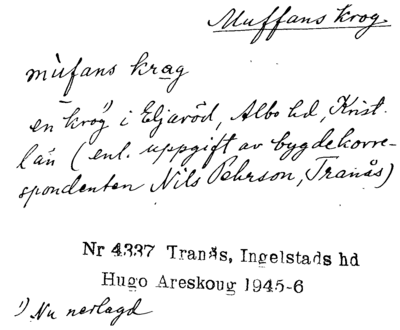 Muffans krog.
mùfans krag
en krog¹⁾ i Eljaröd, Albo hd, Krist.
län (enl. uppgift av bygdekorre-
spondenten Nils Pehrson, Tranås)
Nr 4337 Tranås, Ingelstads hd
Hugo Areskoug 1945-6
¹⁾ Nu nerlagd